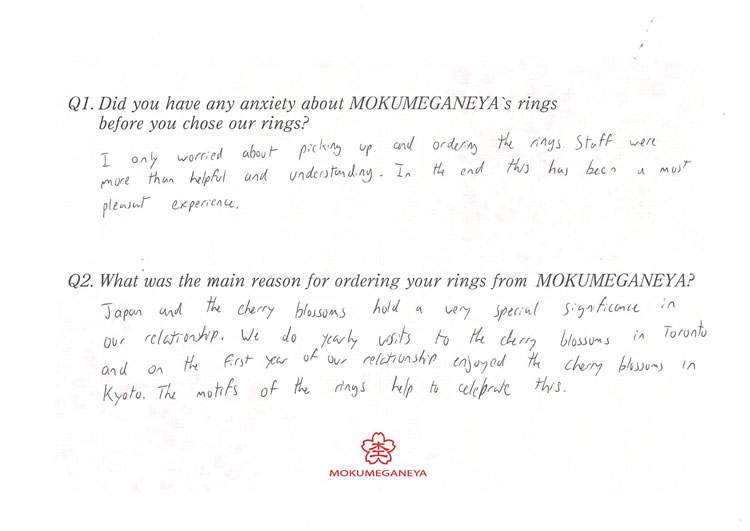 Q1. Did you have any anxiety about MOKUMEGANEYA`s rings
before you chose our rings?
I only worried about picking up and ordering the rings. Staff were
more than helpful and understanding. In the end this has been a most
pleasant experience.
Q2. What was the main reason for ordering your rings from MOKUMEGANEYA?
Japan and the cherry blossoms hold a very special significance in
our relationship. We do yearly visits to the cherry blossoms in Toronto
and on the first year of our relationship enjoyed the cherry blossoms in
Kyoto. The motifs of the rings help to celebrate this.
MOKUMEGANEYA